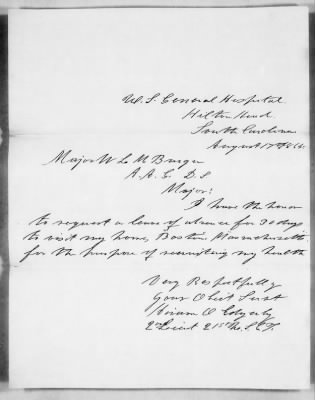 U. S. General Hospital
Hilton Head
South Carolina
August 17th 1864
Major W L M Burger
A. A. G. D. S
Major:
I have the honor
to request a leave of absence for 30 days
to visit my home, Boston Massachusetts
for the purpose of recruiting my health
Very Respectfully
Your Obdt Servt
Hiram A
2nd Lieut 21st U. S. C. T.